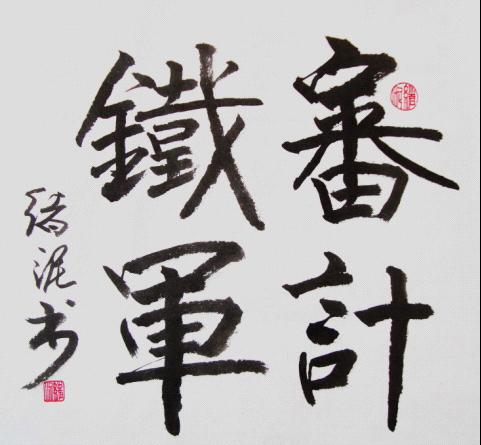 審計
鐵軍
緒泥书